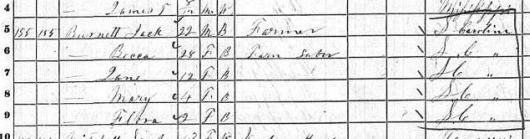 4 — James T M W Mississippi
5 155 155 Burnett Jack 22 M B Farmer S Carolina
6 — Becca 28 F B Farm Labor S C "
7 — Jane 12 F B S C "
8 — Mary 4 F B S C "
9 — Flora 2 F B S C "
10